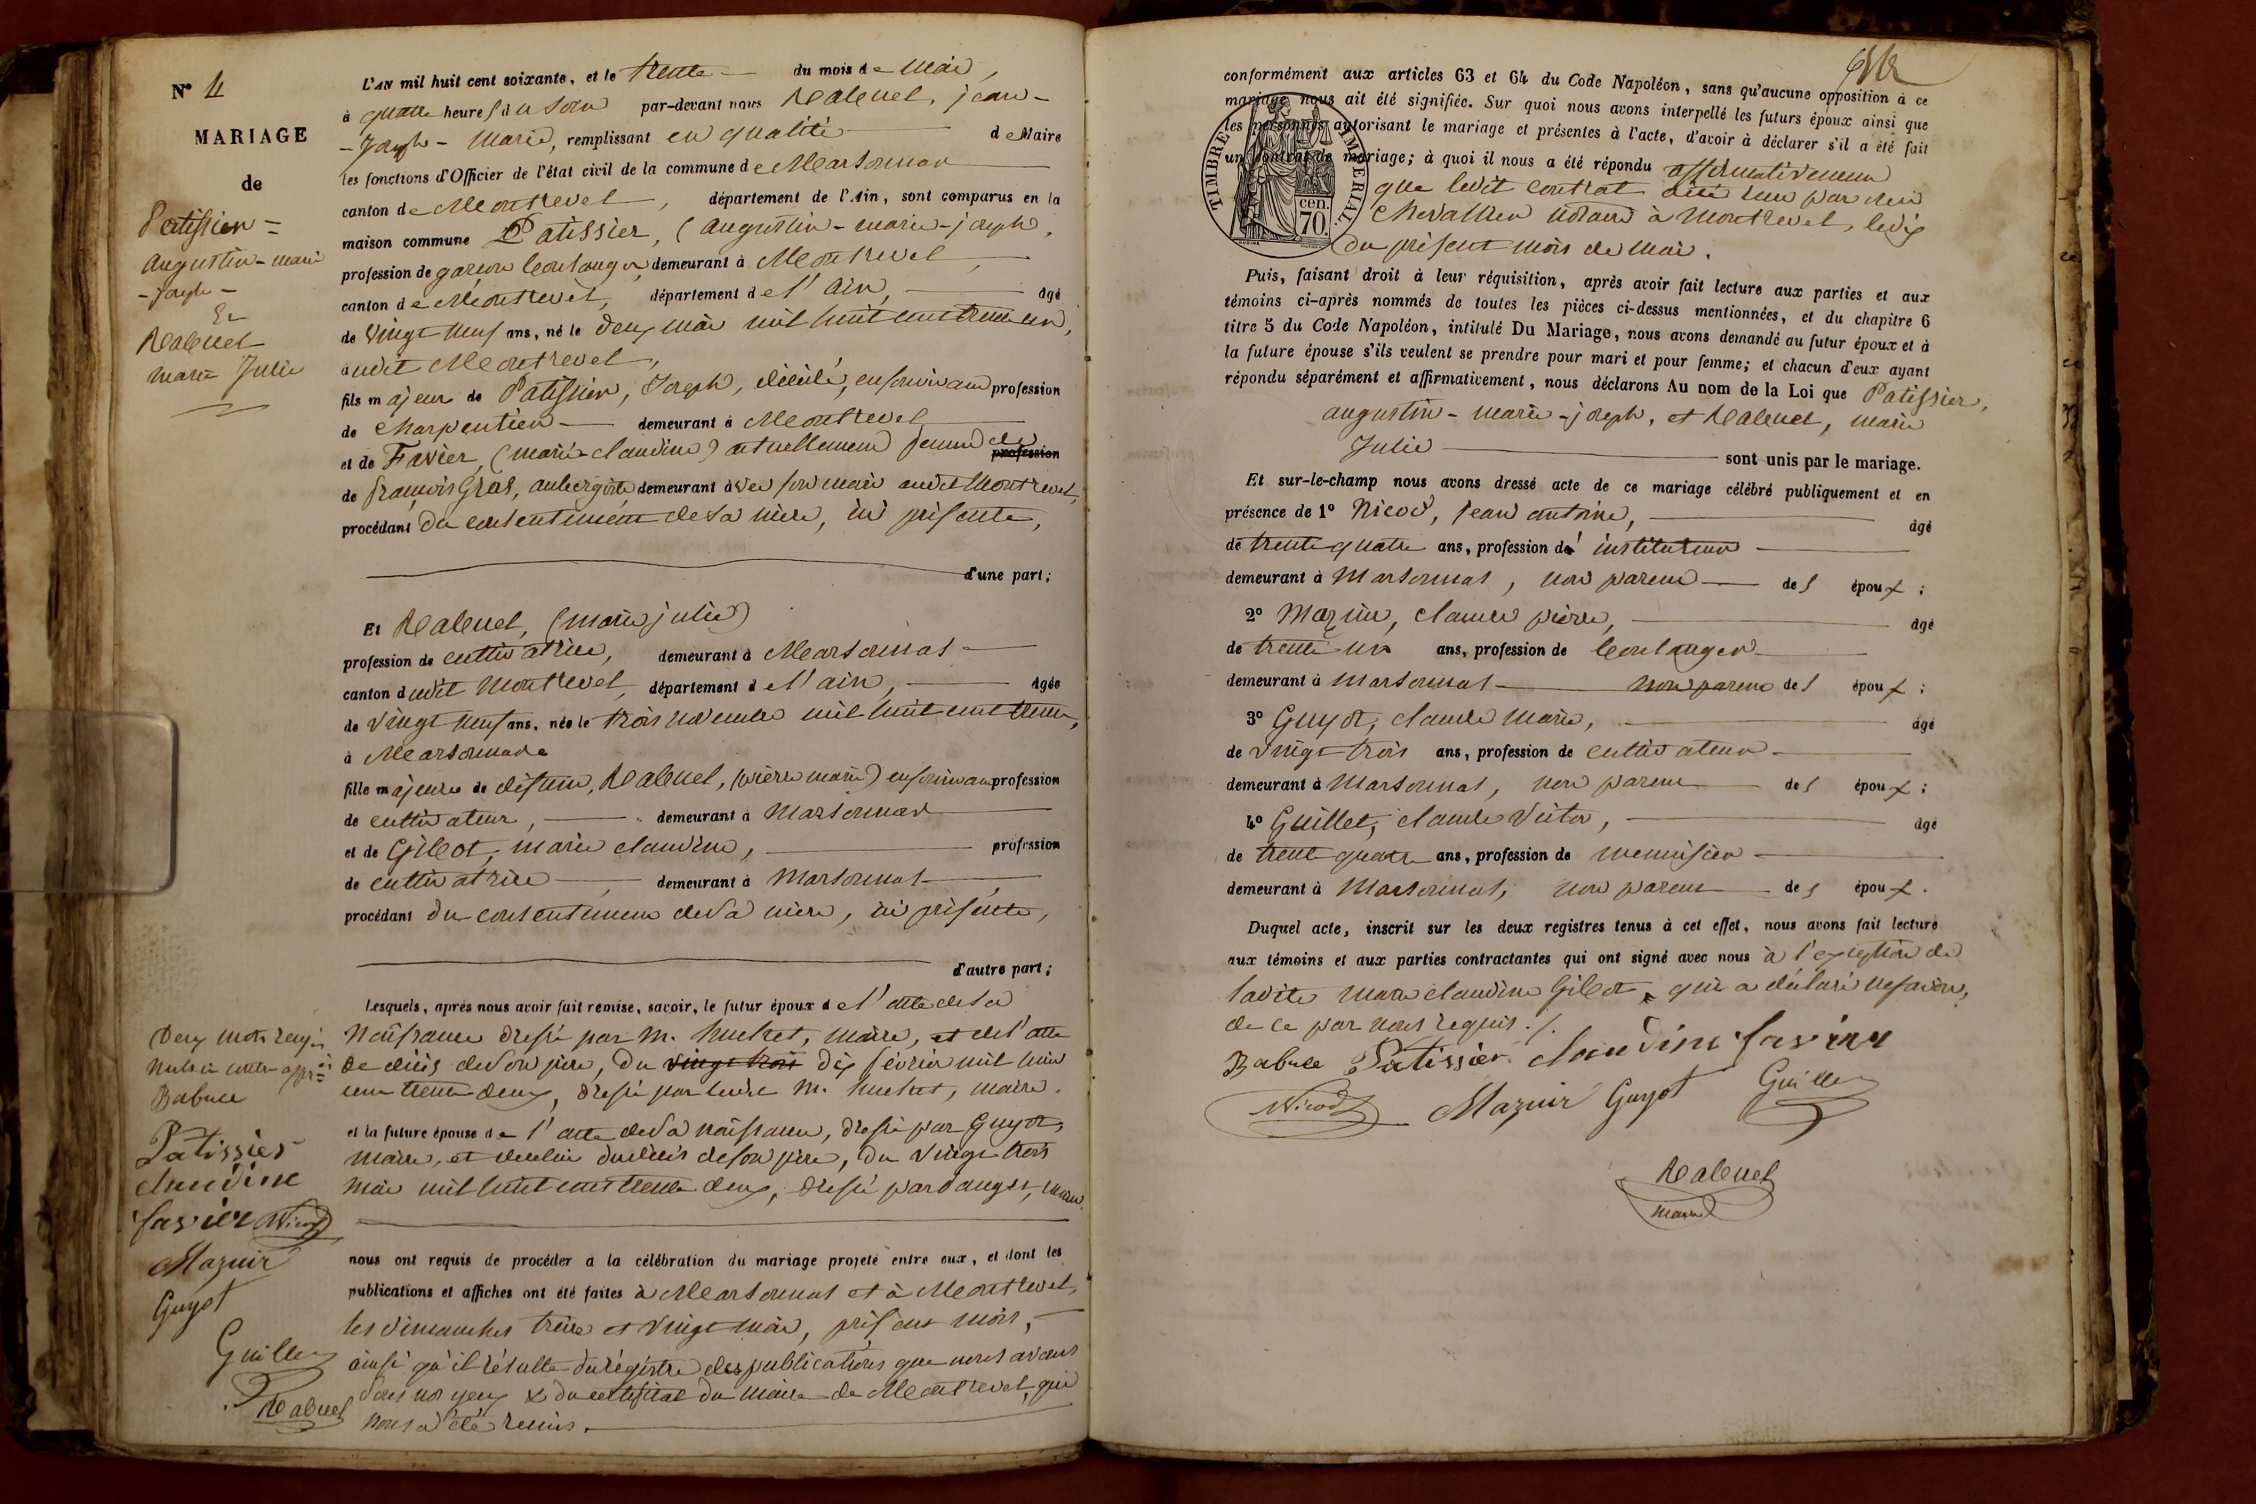 N° 4
MARIAGE
de
Patissier =
Augustin - marie
- Joseph -
Et
Rabuel
marie Julie
L'AN mil huit cent soixante, et le trente du mois de Mai,
à quatre heures du soir par-devant nous Rabuel, jean-
- Joseph - Marie, remplissant en qualité de Maire
les fonctions d'Officier de l'état civil de la commune de Marsonnas
canton de Montrevel, département de l'Ain, sont comparus en la
maison commune Patissier, (augustin - marie - joseph,
profession de garçon boulanger, demeurant à Montrevel,
canton de Montrevel, département de l'Ain, âgé
de vingt neuf ans, né le deux mai mil huit cent trente un,
audit Montrevel,
fils majeur de Patissier, Joseph, décédé, en son vivant profession
de charpentier demeurant à Montrevel
et de Favier, (marie - claudine) actuellement femme de profession
de françois Gras, aubergiste demeurant avec son mari audit Montrevel,
procédant du consentement de sa mère, ici présente,
d'une part;
Et Rabuel, (marie julie)
profession de cultivatrice, demeurant à Marsonnas
canton dudit Montrevel, département de l'ain, âgée
de vingt neuf ans, née le trois novembre mil huit cent trente,
à Marsonnas
fille majeure de défunt, Rabuel, (pierre marie) en son vivant profession
de cultivateur, demeurant à Marsonnas
et de Gibot, marie claudine, profession
de cultivatrice, demeurant à Marsonnas,
procédant du consentement de sa mère, ici présente,
d'autre part;
Lesquels, après nous avoir fait remise, savoir, le futur époux de l'acte de sa
Naissance dressé par M. huchet, maire, et de l'acte
de décès de son père, du vingt trois dix février mil huit
cent trente deux, dressé par ledit M. huchet, maire.
et la future épouse de l'acte de sa naissance, dressé par Guyot,
maire, et de celui du décès de son père, du vingt trois
mai mil huit cent trente deux, dressé par dauger, maire.
nous ont requis de procéder à la célébration du mariage projeté entre eux, et dont les
publications et affiches ont été faites à Marsonnas et à Montrevel,
les dimanches treize et vingt mai, présent mois,
ainsi qu'il résulte du régistre des publications que nous avons
sous nos yeux & du certificat du maire de Montrevel, qui
nous a été remis.
Deux mots rayés
nuls ci contre
Babuee
Patissier
claudine
favier Nicod
Mazuir
Guyot
Guillet
Rabuel
conformément aux articles 63 et 64 du Code Napoléon, sans qu'aucune opposition à ce
mariage nous ait été signifiée. Sur quoi nous avons interpellé les futurs époux ainsi que
les personnes autorisant le mariage et présentes à l'acte, d'avoir à déclarer s'il a été fait
un contrat de mariage; à quoi il nous a été répondu affirmativement
que ledit contrat a été reçu par Me
Chevallier notaire à Montrevel, le dix
du présent mois de mai.
TIMBRE IMPERIAL
70 cen.
Puis, faisant droit à leur réquisition, après avoir fait lecture aux parties et aux
témoins ci-après nommés de toutes les pièces ci-dessus mentionnées, et du chapitre 6
titre 5 du Code Napoléon, intitulé Du Mariage, nous avons demandé au futur époux et à
la future épouse s'ils veulent se prendre pour mari et pour femme; et chacun d'eux ayant
répondu séparément et affirmativement, nous déclarons Au nom de la Loi que Patissier,
augustin - marie - joseph, et Rabuel, marie
Julie sont unis par le mariage.
Et sur-le-champ nous avons dressé acte de ce mariage célébré publiquement et en
présence de 1° Nicod, jean antoine, âgé
de trente quatre ans, profession d' instituteur
demeurant à Marsonnas, non parent des époux;
2° Mazuir, claude pierre, âgé
de trente un ans, profession de boulanger
demeurant à Marsonnas non parent des époux;
3° Guyot, claude marie, âgé
de vingt trois ans, profession de cultivateur
demeurant à Marsonnas, non parent des époux;
4° Guillet, claude Victor, âgé
de trente quatre ans, profession de menuisier
demeurant à Marsonnas, non parent des époux.
Duquel acte, inscrit sur les deux registres tenus à cet effet, nous avons fait lecture
aux témoins et aux parties contractantes qui ont signé avec nous à l'exception de
ladite marie claudine Gibot, qui a déclaré ne savoir,
de ce par nous requis ./.
Babuee Patissier claudine favier
Nicod Mazuir Guyot Guillet
Rabuel
maire